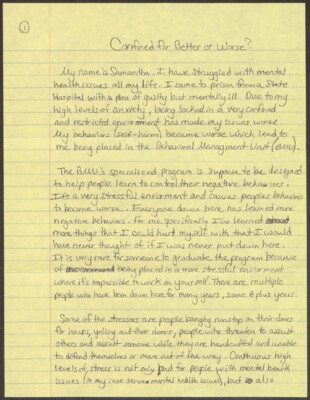 1
Confined for Better or Worse?
My name is Samantha. I have struggled with mental
health issues all my life. I came to prison from a State
Hospital with a plea of guilty but mentally ill. Due to my
high levels of anxiety, being locked in a very confined
and restricted has made my issues worse.
My behaviors (self-harm) became worse which lead to
me being placed in the Behavioral Managment Unit (BMU).
The BMU's specialized program is suppose to be designed
to help people learn to control their negative behaviors.
It's a very stressful enviorment and causes peoples behaviors
to become worse. Everyone down here has learned more
negative behaviors. For me specifically I've learned
more things that I could hurt myself with that I would
have never thought of if I was never put down here.
It is very rare for someone to graduate the program because
of being placed in a more stressful enviorment
where it's impossible to work on yourself. There are multiple
people who have been down here for many years, some 8 plus years.
Some of the stressers are people banging nonstop on their doors
for hours, yelling out their doors, people who threaten to assault
others and assault someone while they are handcuffed and unable
to defend themselves or move out of the way. Continuous high
levels of stress is not only bad for people with mental health
issues (in my case serve mental health issues), but also